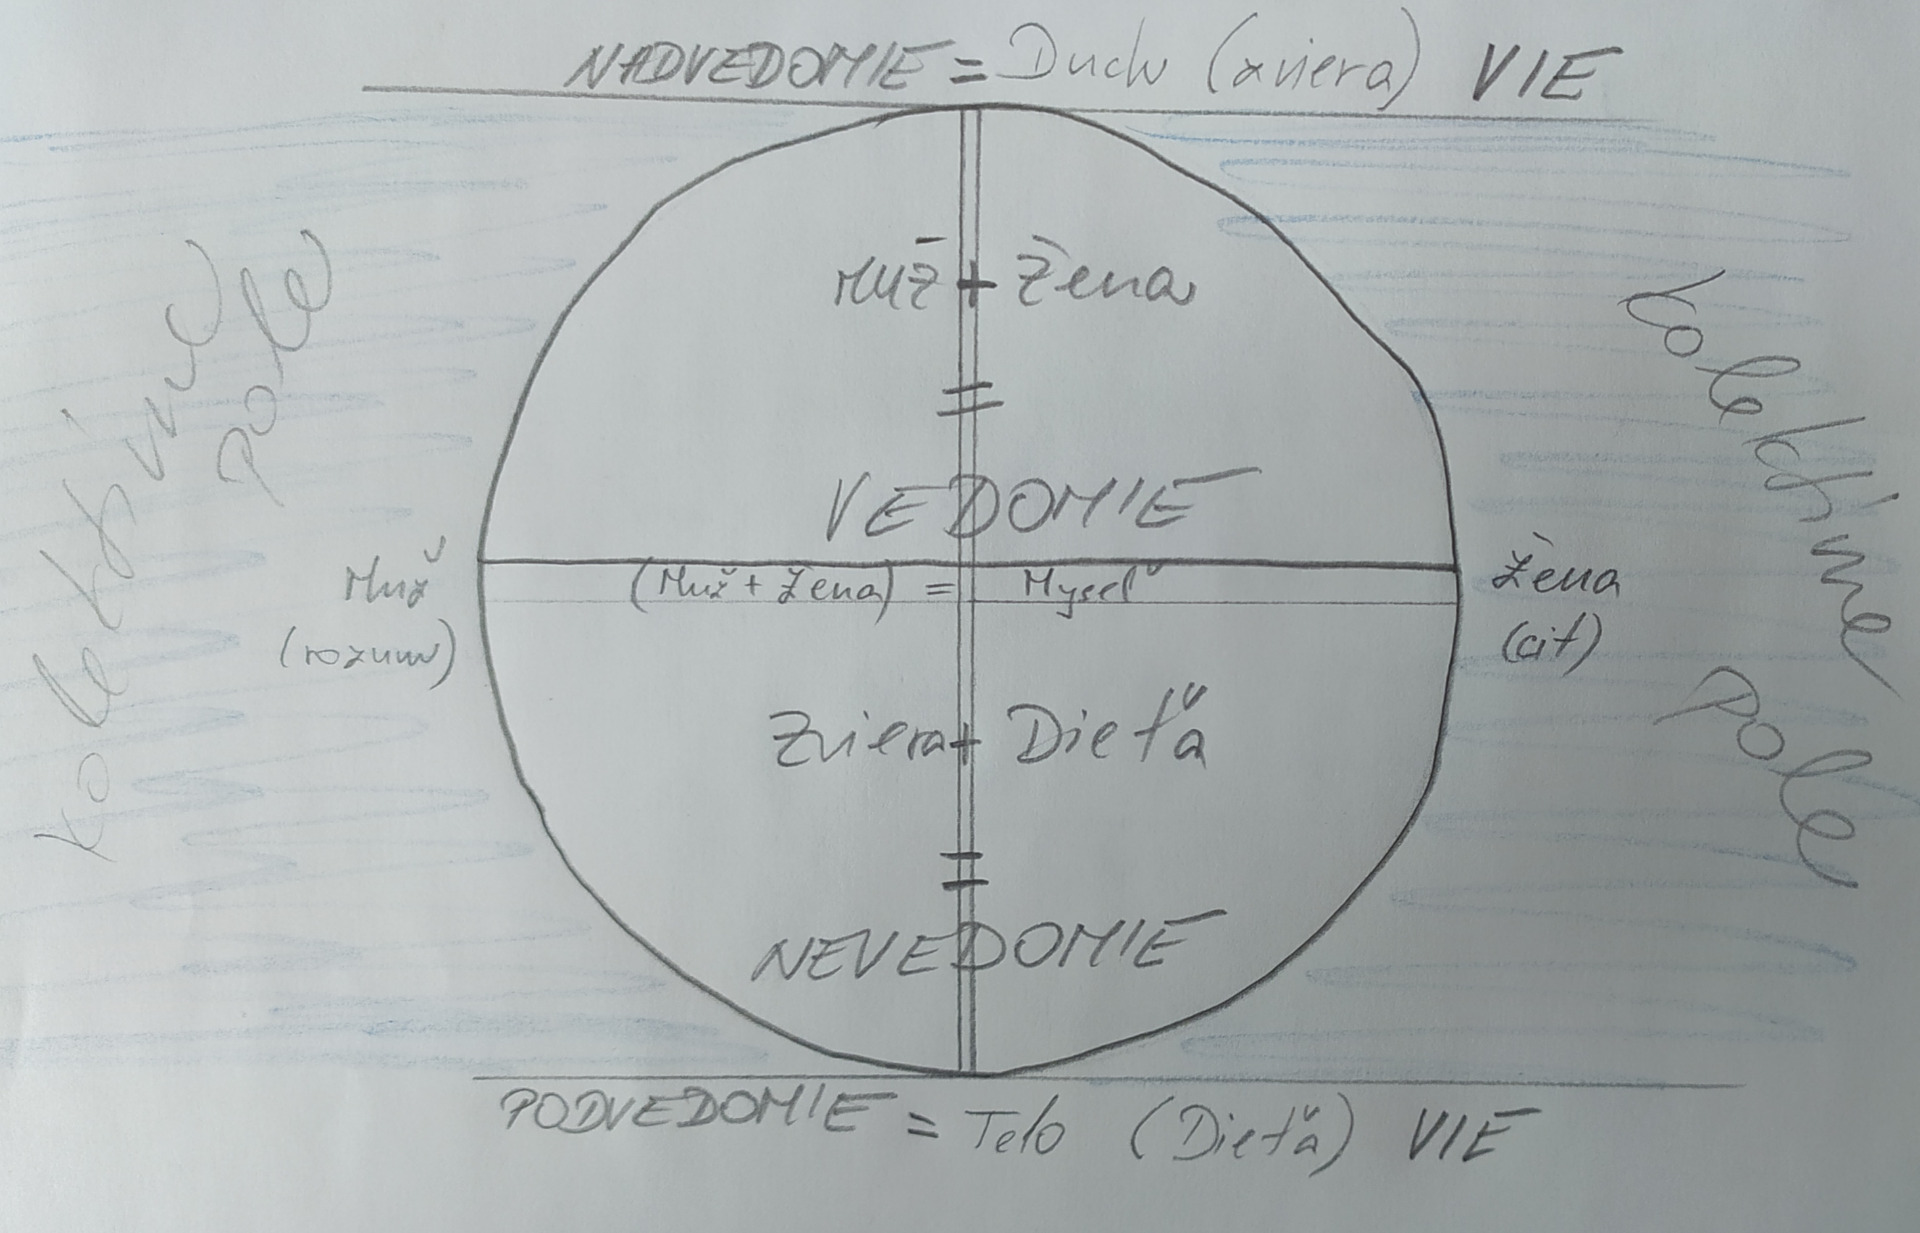 NADVEDOMIE = Duch (zviera) VIE
Kolektívne
pole
Muž + Žena
=
VEDOMIE
Kolektívne
pole
Muž
(rozum)
(Muž + Žena) = Myseľ
Žena
(cit)
Zviera + Dieťa
=
NEVEDOMIE
PODVEDOMIE = Telo (Dieťa) VIE